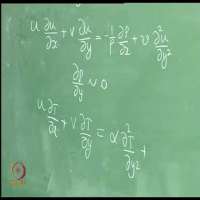 u ∂u/∂x + v ∂u/∂y = -1/ρ ∂p/∂x + ν ∂²u/∂y²
∂p/∂y ≈ 0
u ∂T/∂x + v ∂T/∂y = α ∂²T/∂y² +